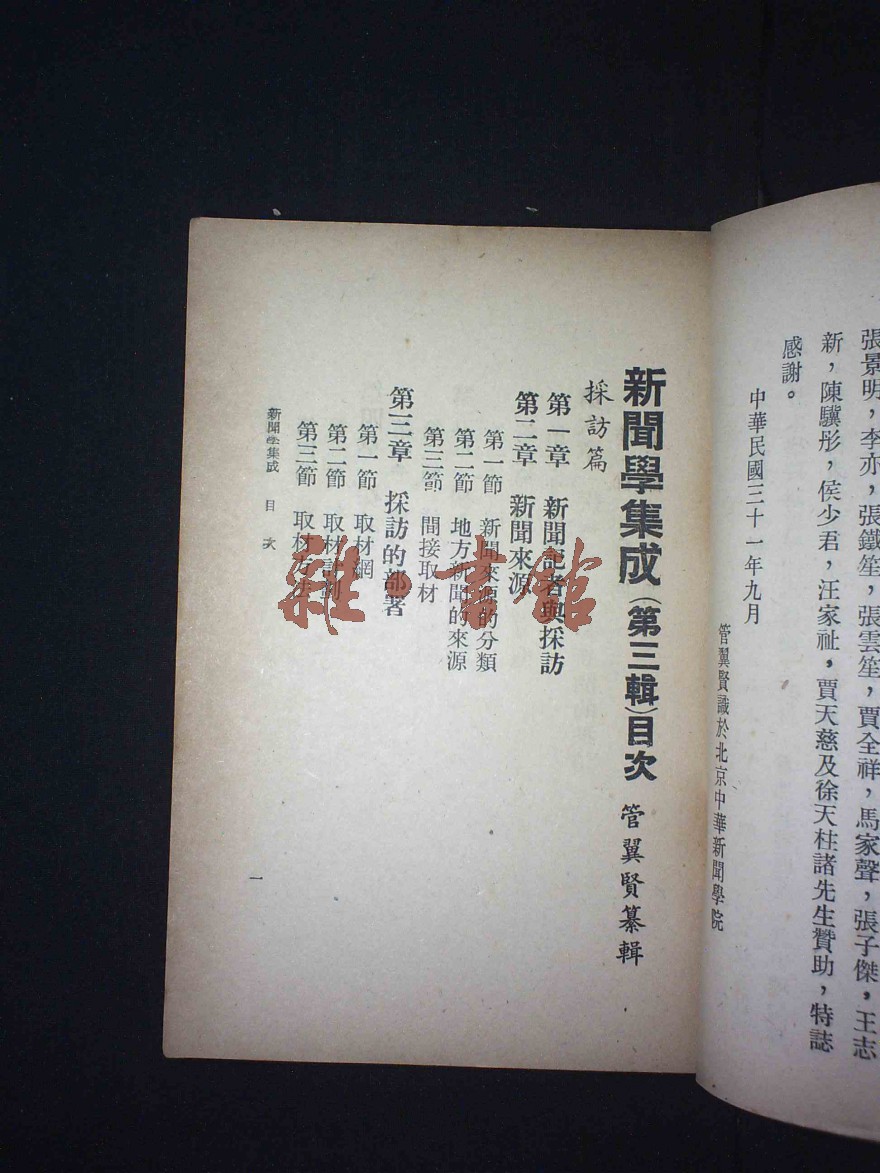 張景明，李亦，張鐵笙，張雲笙，賈全祥，馬家聲，張子傑，王志
新，陳驥彤，侯少君，汪家祉，賈天慈及徐天柱諸先生贊助，特誌
感謝。
中華民國三十一年九月
管翼賢識於北京中華新聞學院
新聞學集成（第三輯）目次 管翼賢纂輯
採訪篇
第一章 新聞記者與採訪
第二章 新聞來源
第一節 新聞來源的分類
第二節 地方新聞的來源
第三節 間接取材
第三章 採訪的部署
第一節 取材網
第二節 取材計劃
第三節 取材方法
新聞學集成 目次
一
雜·書館